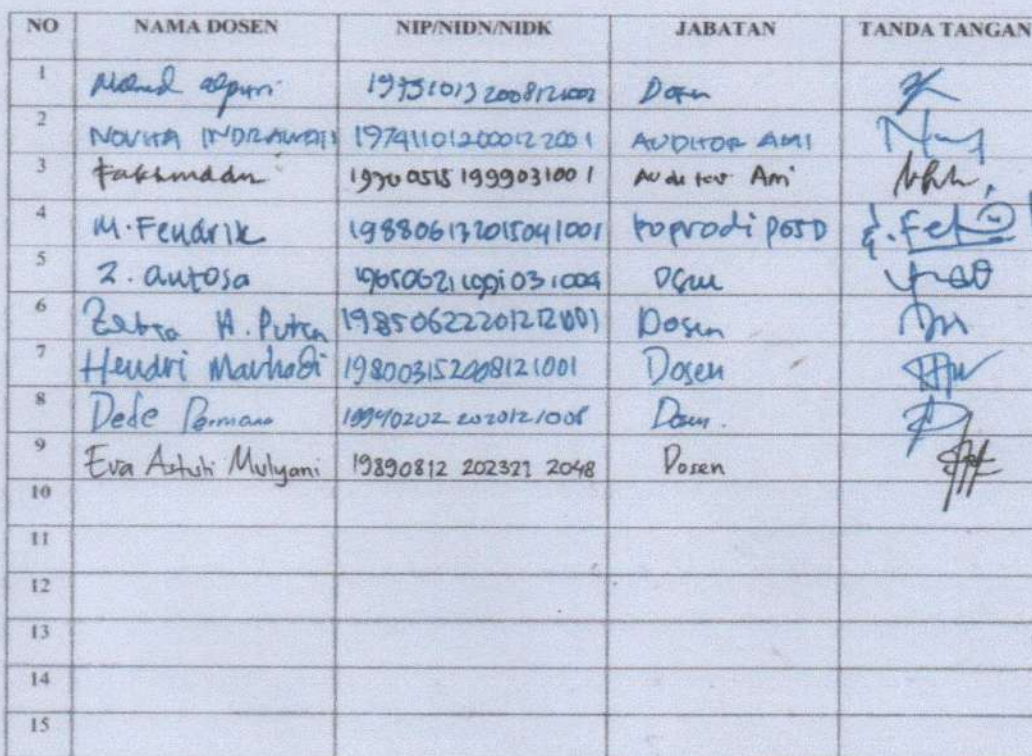 NO NAMA DOSEN NIP/NIDN/NIDK JABATAN TANDA TANGAN
1 Dosen
2 NOVITA INDRAWATI 197411012000122001 AUDITOR AMI
3 Fakhruddin 19700515 199903 1001 Auditor Ami
4 M. Fendrik 198806132015041001 Koprodi PGSD
5 Z. antosa Dosen
6 H. Putra 198506222012121001 Dosen
7 Hendri Marhadi 198003152008121001 Dosen
8 Dede Permana 19940202 202012 1008 Dosen.
9 Eva Astuti Mulyani 19890812 202321 2048 Dosen
10
11
12
13
14
15